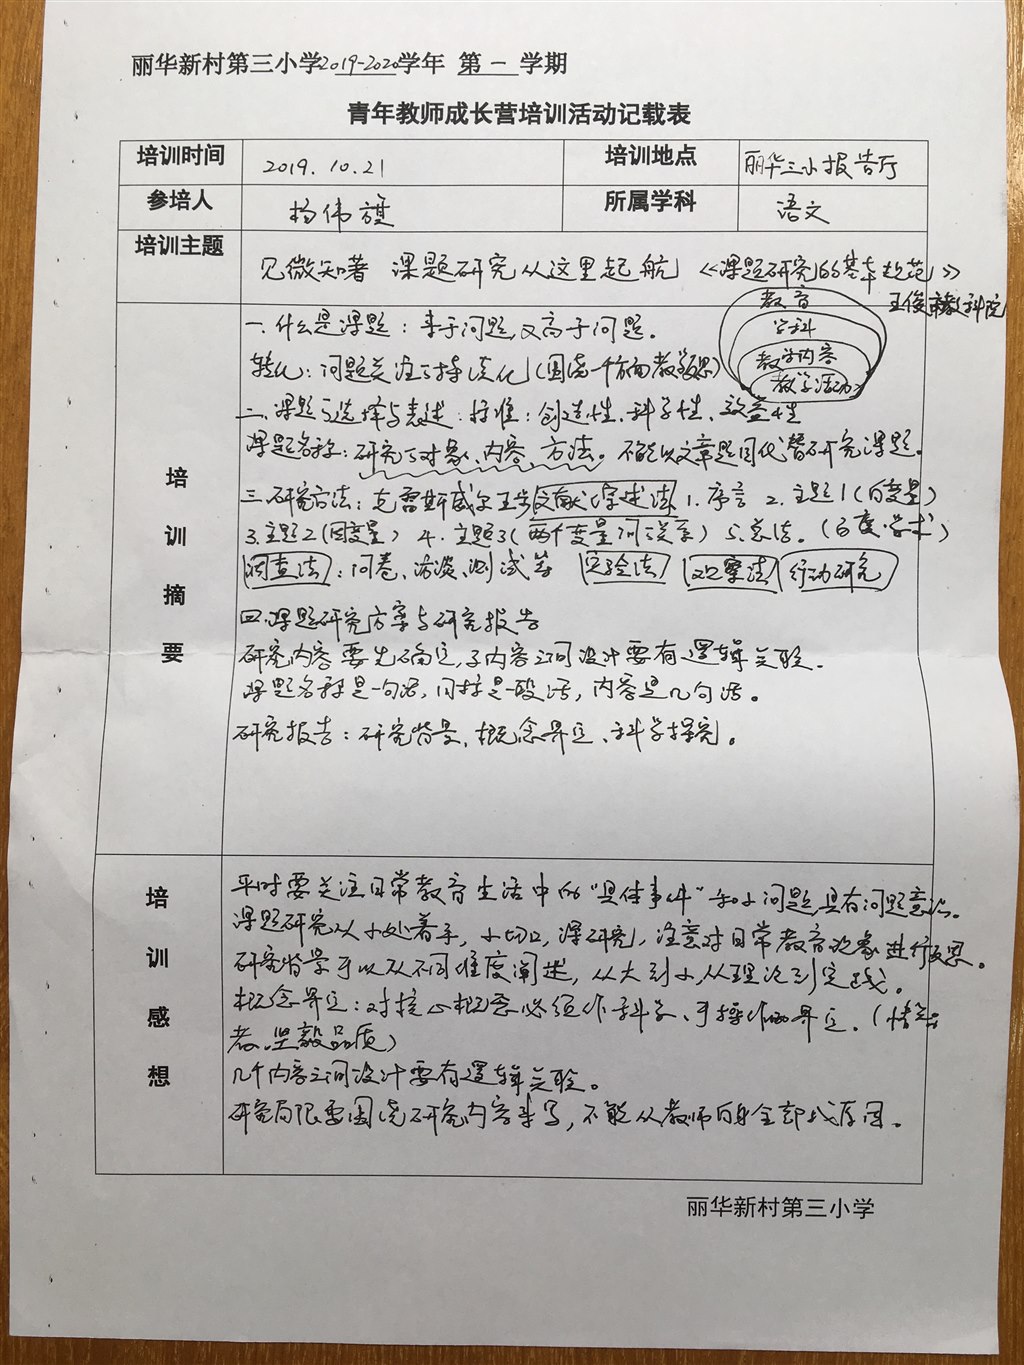 丽华新村第三小学2019-2020学年 第一学期
青年教师成长营培训活动记载表
培训时间 2019.10.21 培训地点 丽华三小报告厅
参培人 杨伟 所属学科 语文
培训主题 见微知著 课题研究从这里起航 《课题研究的基本规范》
王俊 教科院
培训摘要
教育
学科
教学内容
教学活动
一、什么是课题：来于问题,又高于问题。
转化：问题关注了持淡化(围绕一个方面教学)
二、课题的选择与表述：标准：创造性、科学性、效益性
课题名称：研究的对象、内容、方法。不能以文章题目代替研究课题。
三、研究方法：克雷斯威尔五步文献综述法 1.序言 2.主题1(自变量)
3.主题2(因变量) 4.主题3(两个变量间关系) 5.总结。(百度学术)
调查法：问卷、访谈、测试等 实验法 观察法 行动研究
四.课题研究方案与研究报告
研究内容要先确定,子内容之间设计要有逻辑关联.
课题名称是一句话,目标是一段话,内容是几句话。
研究报告：研究背景、概念界定、科学探究。
培训感想
平时要关注日常教育生活中的"具体事件"和小问题,具有问题意识。
课题研究从小处着手,小切口,深研究,注意对日常教育现象进行反思。
研究背景可以从不同维度阐述,从大到小,从理论到实践。
概念界定：对核心概念必须作科学、可操作的界定.(
者、坚毅品质)
几个内容之间设计要有逻辑关联。
研究局限要围绕研究内容来写,不能从教师自身全部找原因.
丽华新村第三小学